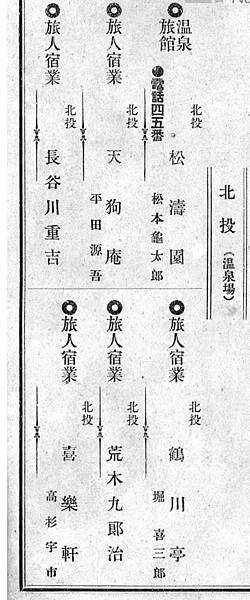 北投（温泉場）
◎温泉旅館
電話四五番
北投
松濤園
松本龜太郎
◎旅人宿業
北投
天狗庵
平田源吾
◎旅人宿業
北投
長谷川重吉
◎旅人宿業
北投
鶴川亭
堀喜三郎
◎旅人宿業
北投
荒木九郎治
◎旅人宿業
北投
喜樂軒
高杉宇市